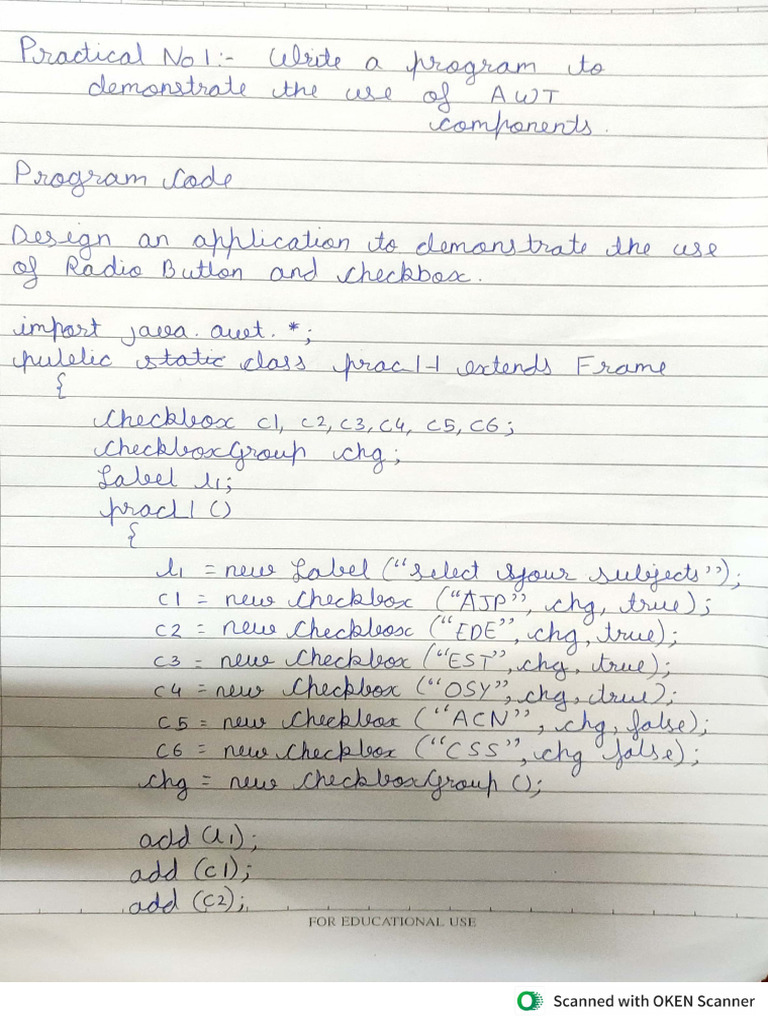 Practical No 1:- Write a program to
demonstrate the use of AWT
components.
Program Code
Design an application to demonstrate the use
of Radio Button and checkbox.
import java.awt.*;
public static class prac1-1 extends Frame
{
Checkbox c1, c2, c3, c4, c5, c6;
CheckboxGroup chg;
Label l1;
prac11()
{
l1 = new Label ("select your subjects");
c1 = new Checkbox ("AJP", chg, true);
c2 = new Checkbox ("EDE", chg, true);
c3 = new Checkbox ("EST", chg, true);
c4 = new Checkbox ("OSY", chg, true);
c5 = new Checkbox ("ACN", chg, false);
c6 = new Checkbox ("CSS", chg false);
chg = new CheckboxGroup ();
add (l1);
add (c1);
add (c2);
FOR EDUCATIONAL USE
Scanned with OKEN Scanner